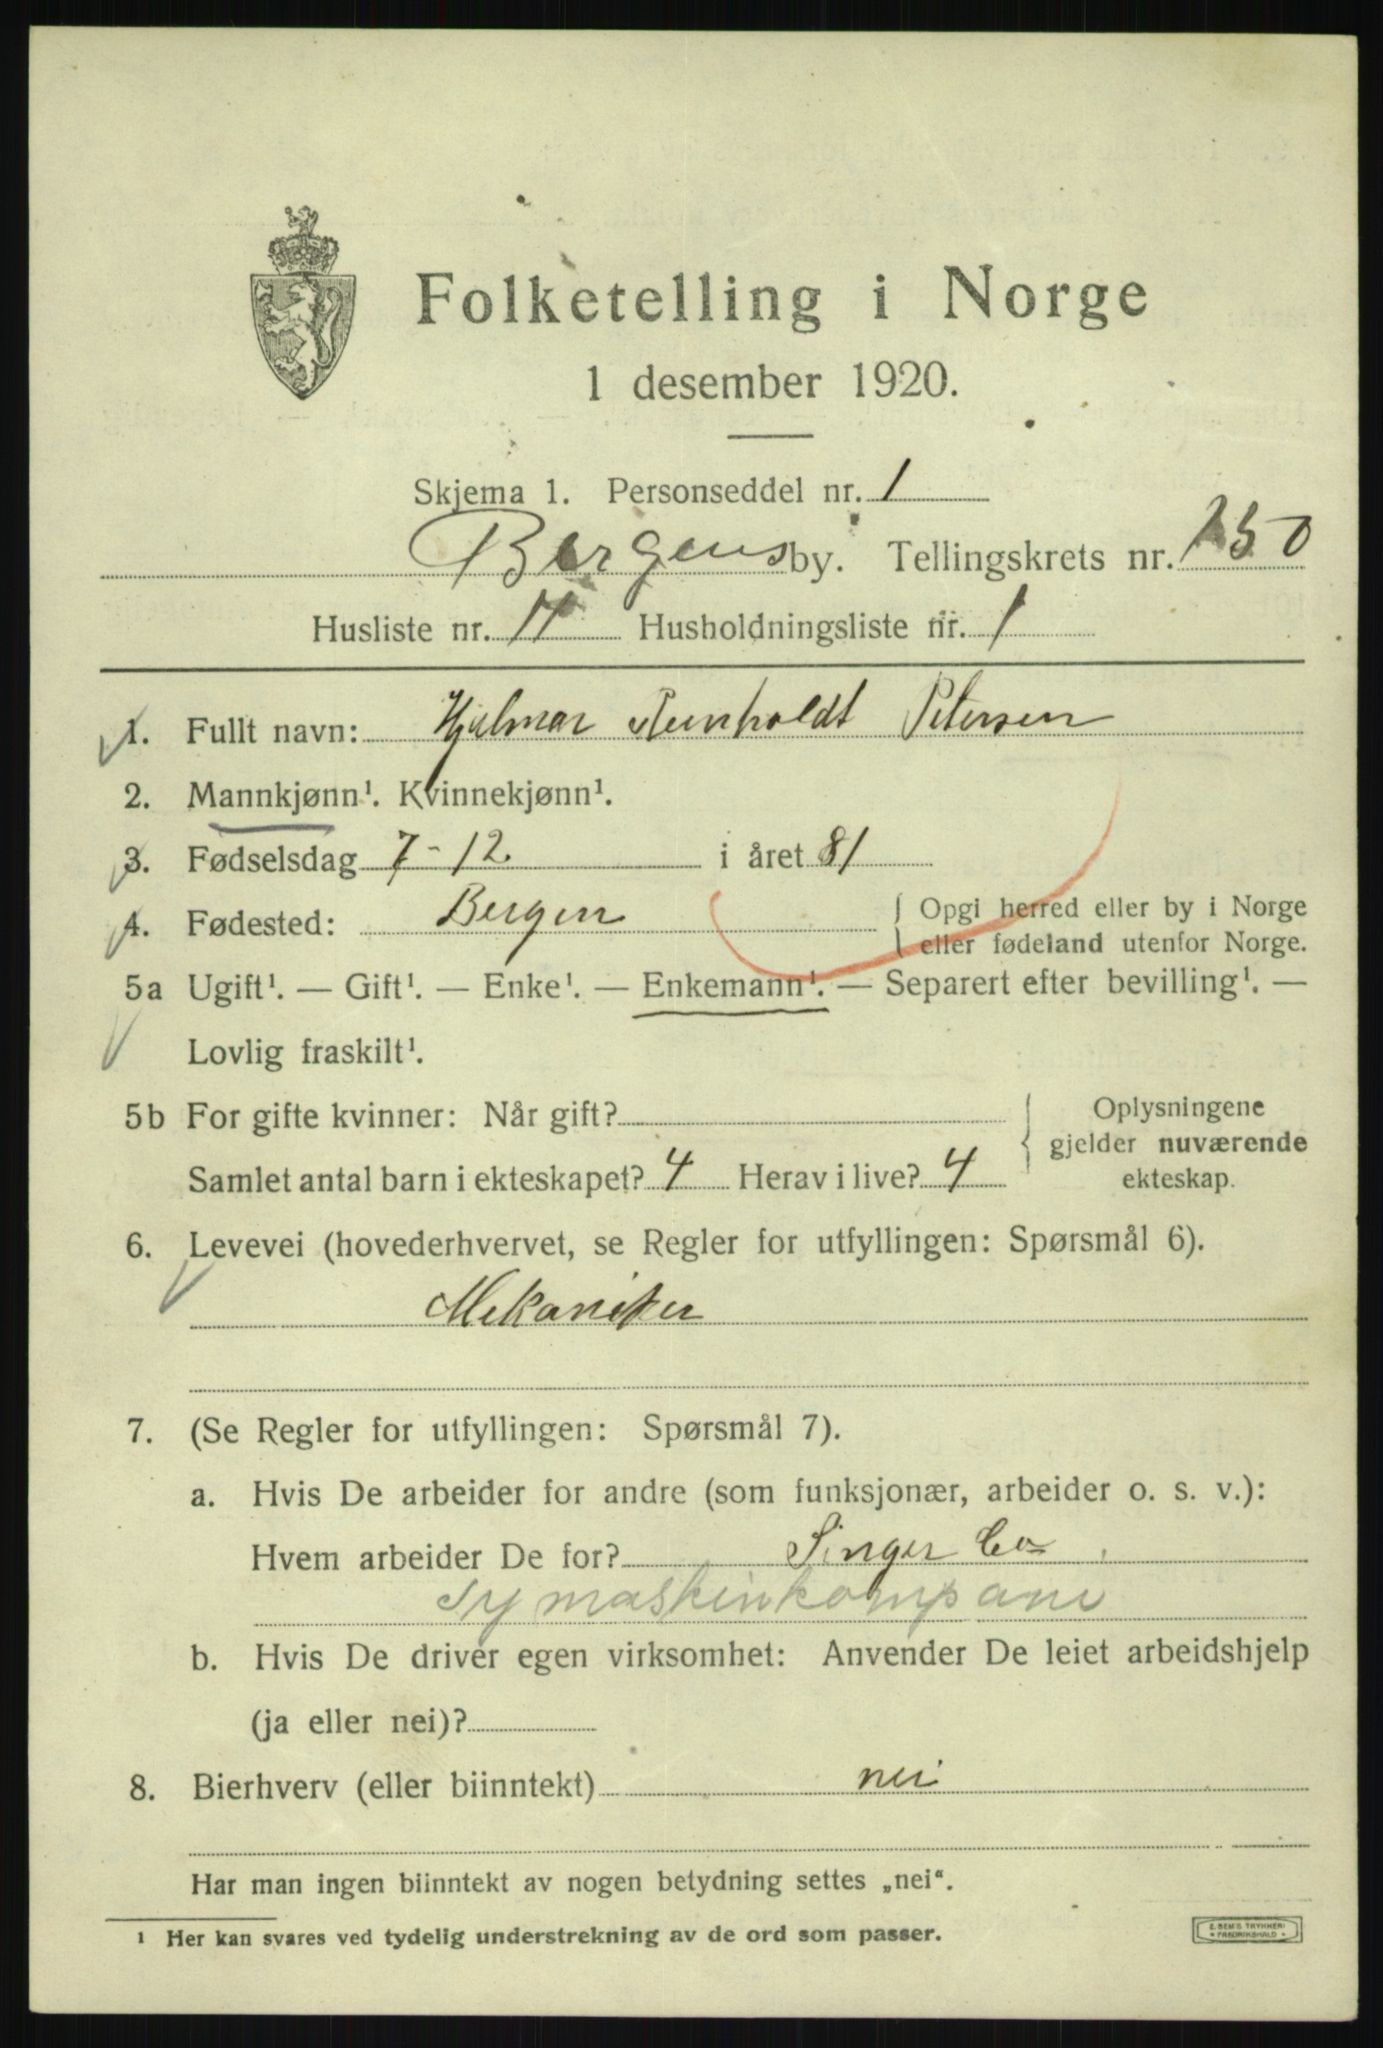 Folketelling i Norge
1 desember 1920.
Skjema 1. Personseddel nr. 1
Bergens by. Tellingskrets nr. 150
Husliste nr. 11 Husholdningsliste nr. 1
1. Fullt navn: Hjalmar Reinholdt Petersen
2. Mannkjønn¹. Kvinnekjønn¹.
3. Fødselsdag 7-12 i året 81
4. Fødested: Bergen { Opgi herred eller by i Norge
eller fødeland utenfor Norge.
5a Ugift¹. — Gift¹. — Enke¹. — Enkemann¹. — Separert efter bevilling¹. —
Lovlig fraskilt¹.
5b For gifte kvinner: Når gift? { Oplysningene
gjelder nuværende
Samlet antal barn i ekteskapet? 4 Herav i live? 4 ekteskap.
6. Levevei (hovederhvervet, se Regler for utfyllingen: Spørsmål 6).
Mekaniker
7. (Se Regler for utfyllingen: Spørsmål 7).
a. Hvis De arbeider for andre (som funksjonær, arbeider o. s. v.):
Hvem arbeider De for? Singer Co
Symaskinkompani
b. Hvis De driver egen virksomhet: Anvender De leiet arbeidshjelp
(ja eller nei)?
8. Bierhverv (eller biinntekt) nei
Har man ingen biinntekt av nogen betydning settes „nei“.
¹ Her kan svares ved tydelig understrekning av de ord som passer.
E. SEM'S TRYKKERI
* FREDRIKSHALD *